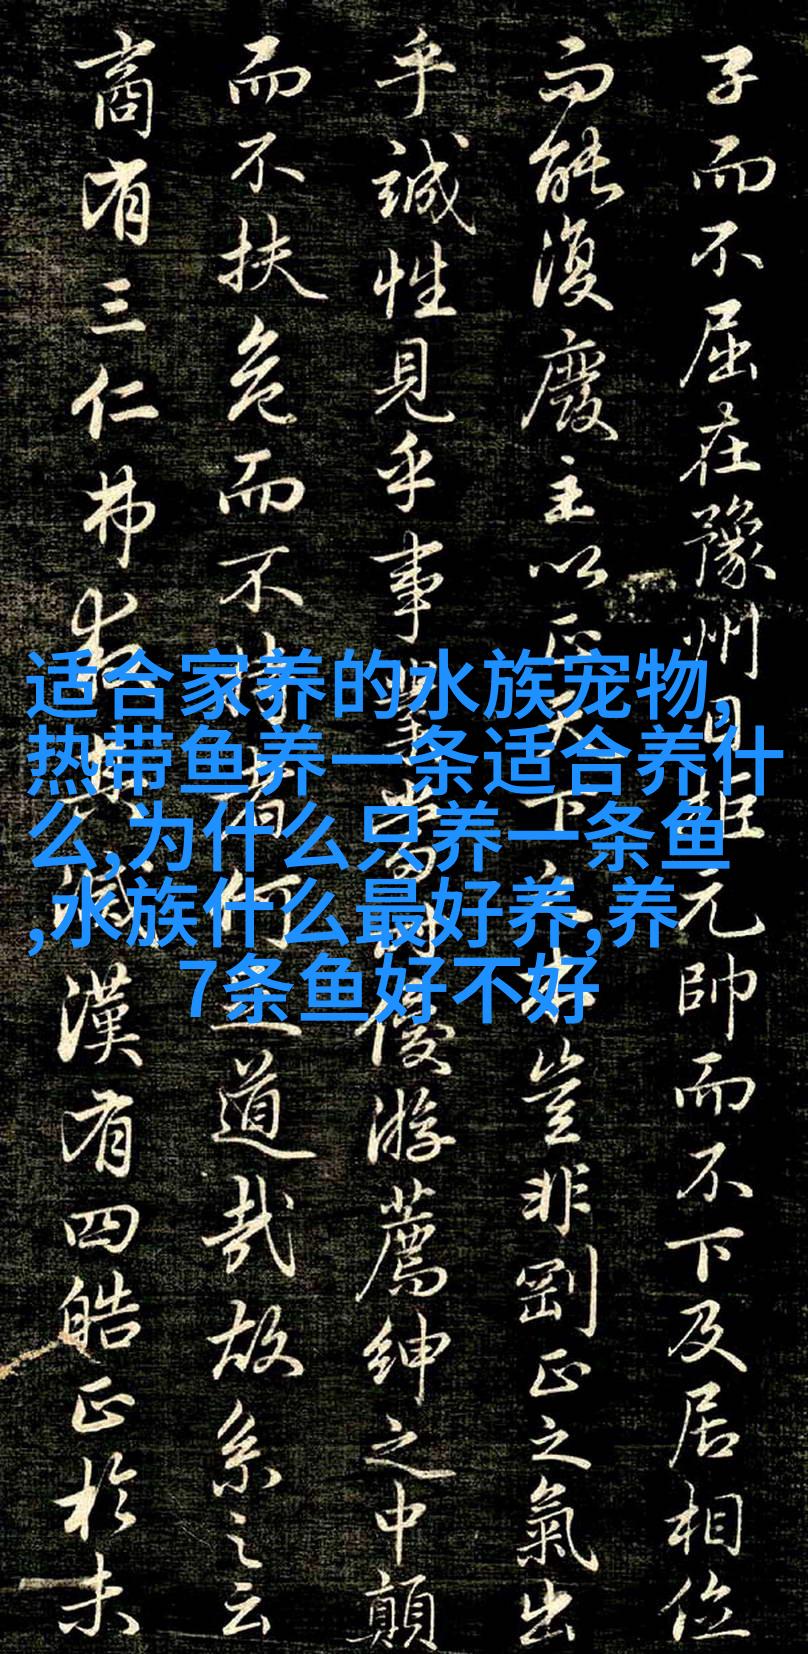 子而不屈在豫州日拒元帥而不下及居相位
而能復廢主以正天下之本豈非剛正之氣出
乎誠性見乎事業當時優游薦紳之中顛
而不扶危而不持者何道哉故系之云
商有三仁弗救滅漢有四皓正於未
适合家养的水族宠物,
热带鱼养一条适合养什
么,为什么只养一条鱼
,水族什么最好养,养
7条鱼好不好